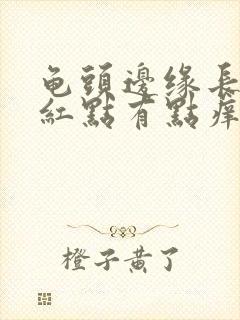 龟頭邊缘長
紅點有點痒
橙子黄了